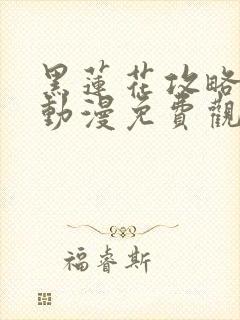 黑蓮花攻略
動漫免費觀
福睿斯